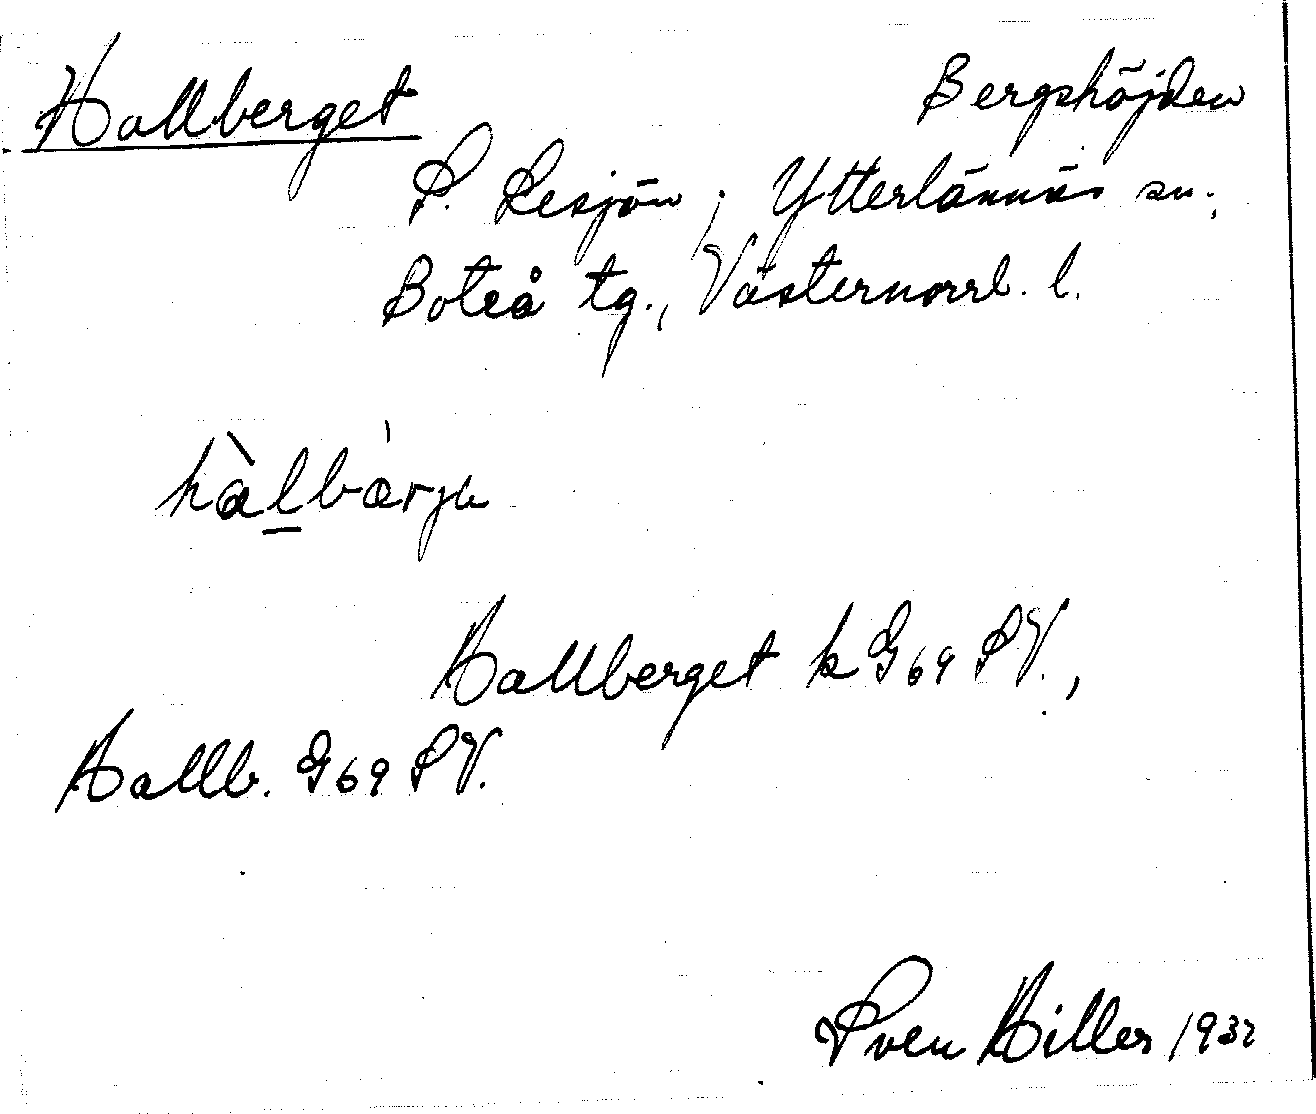 Hallberget Bergshöjden
S. Lesjön, Ytterlännäs sn.,
Boteå tg., Västernorrl. l.
hàlbàrjə
Hallberget k G69 SV.,
Hallb. G69 SV.
Sven Hiller 1932